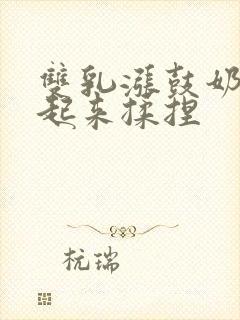 雙乳漲鼓奶
起来揉捏
杭瑞